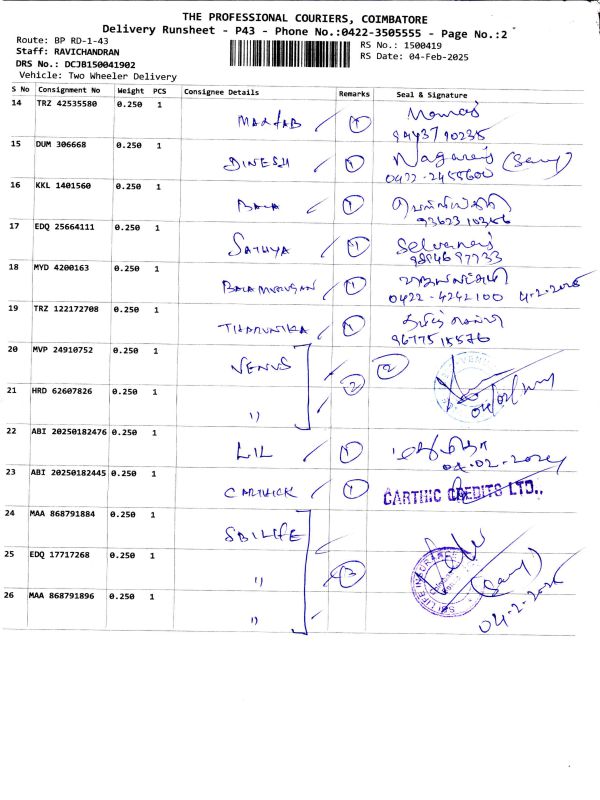 THE PROFESSIONAL COURIERS, COIMBATORE
Delivery Runsheet - P43 - Phone No.:0422-3505555 - Page No.:2
Route: BP RD-1-43
RS No.: 1500419
Staff: RAVICHANDRAN
RS Date: 04-Feb-2025
DRS No.: DCJB150041902
Vehicle: Two Wheeler Delivery
S No Consignment No Weight PCS Consignee Details Remarks Seal & Signature
14 TRZ 42535580 0.250 1 1
9443790235
15 DUM 306668 0.250 1 DINESH 1 Nagaraj
0422-2458600
16 KKL 1401560 0.250 1 BALA 1
9362310356
17 EDQ 25664111 0.250 1 SATHYA 1 Selvaraj
9894697733
18 MYD 4200163 0.250 1 BALAMURUGAN 1
0422-4242100
19 TRZ 122172708 0.250 1 THARUNIKA 1
9677515576
20 MVP 24910752 0.250 1 VENUS 2 2
21 HRD 62607826 0.250 1 "
22 ABI 20250182476 0.250 1 LIL 1
04-02-2025
23 ABI 20250182445 0.250 1 CARTHICK 1 CARTHIC CREDITS LTD.,
24 MAA 868791884 0.250 1 SBI LIFE
25 EDQ 17717268 0.250 1 " 3
SBI LIFE INSURANCE
26 MAA 868791896 0.250 1 "
04-2-2025